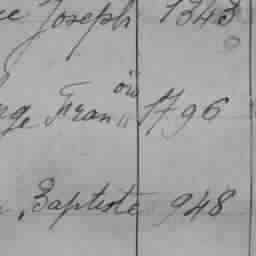 Joseph 1343
Fran„ois 1796
, Baptiste 948